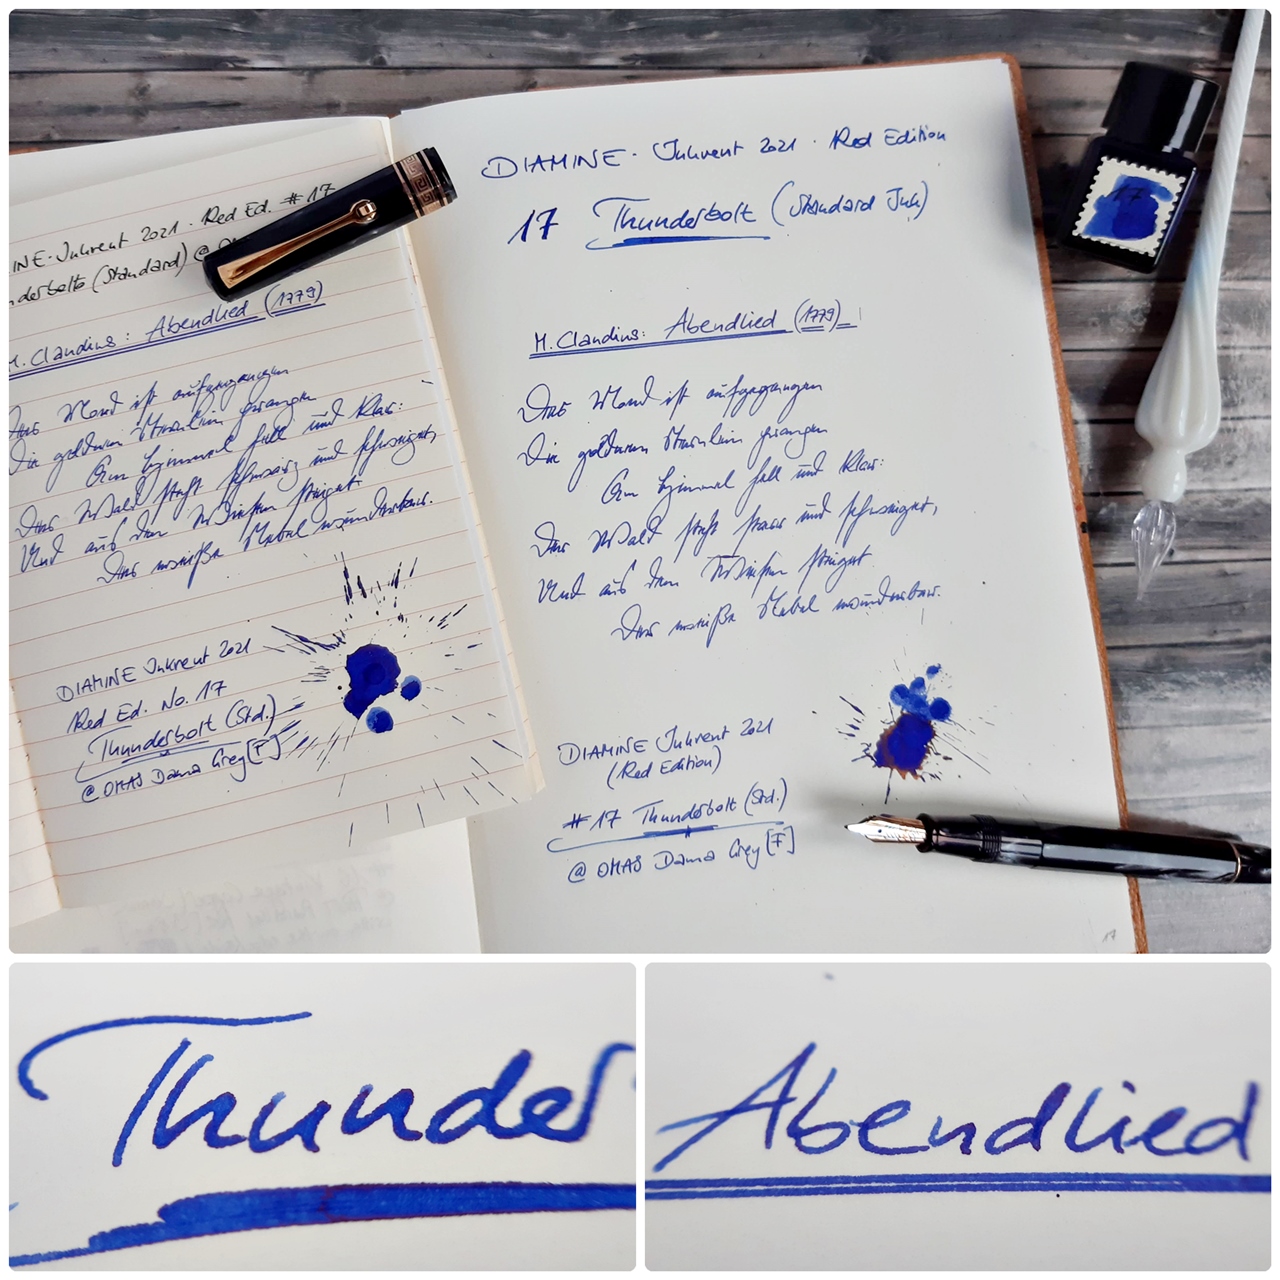 INE · Inkvent 2021 · Red Ed. #17
(Standard) @
M. Claudius: Abendlied (1779)
Der Mond ist aufgegangen
Die goldnen Sternlein prangen
Am Himmel hell und klar:
Der Wald steht schwarz und schweiget,
Und aus den Wiesen steiget
Der weiße Nebel wunderbar.
DIAMINE Inkvent 2021
Red Ed. No. 17
Thunderbolt (Std.)
@ OMAS Dama Grey [F]
DIAMINE · Inkvent 2021 · Red Edition
17 Thunderbolt (Standard Ink)
M. Claudius: Abendlied (1779)
Der Mond ist aufgegangen
Die goldnen Sternlein prangen
Am Himmel hell und klar:
Der Wald steht und schweiget,
Und aus den Wiesen steiget
Der weiße Nebel wunderbar.
DIAMINE Inkvent 2021
(Red Edition)
#17 Thunderbolt (Std.)
@ OMAS Dama Grey [F]
17
17
Thunder
Abendlied